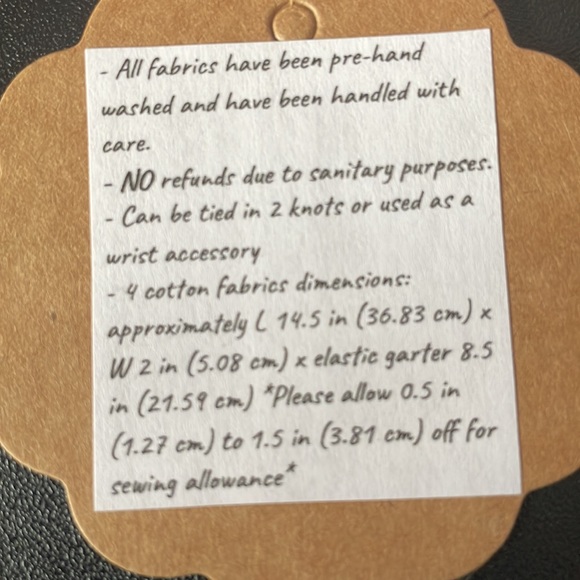 - All fabrics have been pre-hand
washed and have been handled with
care.
- NO refunds due to sanitary purposes.
- Can be tied in 2 knots or used as a
wrist accessory
- 4 cotton fabrics dimensions:
approximately L 14.5 in (36.83 cm) x
W 2 in (5.08 cm) x elastic garter 8.5
in (21.59 cm) *Please allow 0.5 in
(1.27 cm) to 1.5 in (3.81 cm) off for
sewing allowance*